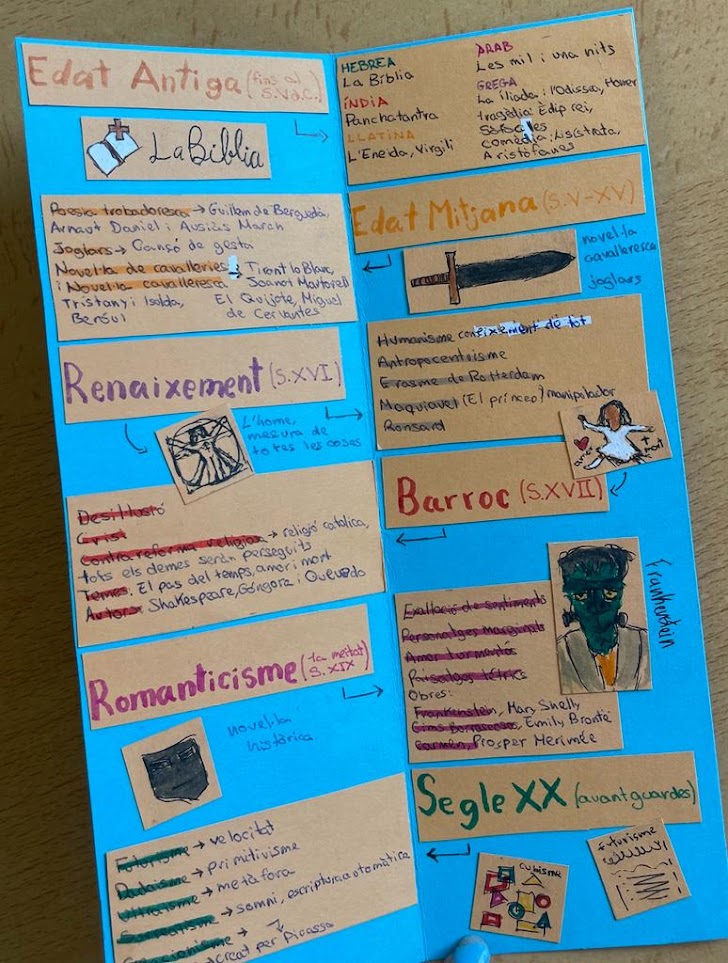 Edat Antiga (fins al
S.V d.C.)
La Bíblia
HEBREA
La Bíblia
ÍNDIA
Panchatantra
LLATINA
L'Eneida, Virgili
ARAB
Les mil i una nits
GREGA
La ilíada i l'Odissea, Homer
tragèdia: Èdip rei,
Sòfocles
comèdia: Lisístrata,
Aristòfanes
Edat Mitjana (S.V-XV)
novel·la
cavalleresca
joglars
Poesia trobadoresca → Guillem de Berguedà,
Arnaut Daniel i Ausiàs March
Joglars → Cançó de gesta
Novel·la de cavalleries → Tirant lo Blanc,
i Novel·la cavalleresca Joanot Martorell
Tristany i Isolda, El Quijote, Miguel
Beròul de Cervantes
Renaixement (S.XVI)
L'home,
mesura de
totes les coses
Humanisme coneixement de tot
Antropocentrisme
Erasme de Rotterdam
Maquiavel (El príncep) manipulador
Ronsard
amor
mort
Barroc (S.XVII)
Desil·lusió
Crisi
Contrareforma religiosa → religió catòlica,
tots els demes seràn perseguits
Temes: El pas del temps, amor i mort
Autors: Shakespeare, Góngora i Quevedo
Romanticisme (1a meitat
S.XIX)
novel·la
històrica
Frankenstein
Exaltació de sentiments
Personatges marginats
Amor turmentós
Paisatges tètrics
Obres:
Frankenstein, Mary Shelly
Cims Borrascosos, Emily Brontë
Carmen, Prosper Merimée
Segle XX (avantguardes)
cubisme
futurisme
Futurisme → velocitat
Dadaisme → primitivisme
Ultraisme → metàfora
Surrealisme → somni, escriptura automàtica
Creacionisme →
creat per Picasso